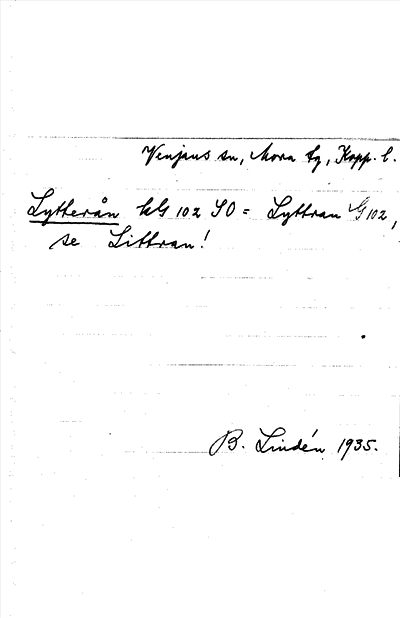 Venjans sn, Mora tg, Kopp. l.
Lytterån kG 102 SO = Lyttran G 102,
se Littran!
B. Lindén 1935.